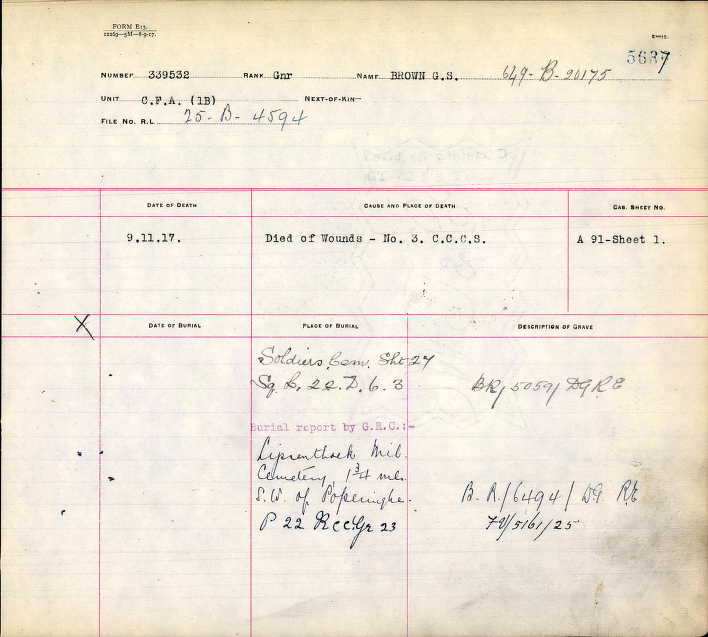 FORM E13.
5637
NUMBER 339532 RANK Gnr NAME BROWN G.S. 649-B-20175
UNIT C.F.A. (1B) NEXT-OF-KIN
FILE NO. R.L. 25-B-4594
DATE OF DEATH CAUSE AND PLACE OF DEATH CAS. SHEET NO.
9.11.17. Died of Wounds - No. 3. C.C.C.S. A 91-Sheet 1.
X DATE OF BURIAL PLACE OF BURIAL DESCRIPTION OF GRAVE
Soldiers Cem. Sht 27
Sq. L, 22. D. 6. 3 BR/5059/DGRE
Burial report by G.R.C.:-
Lijssenthoek Mil.
Cemetery, 1 3/4 mls.
S.W. of Poperinghe. B.R/6494/DG RE
P 22 Rcc Gr 23 FV/5161/25